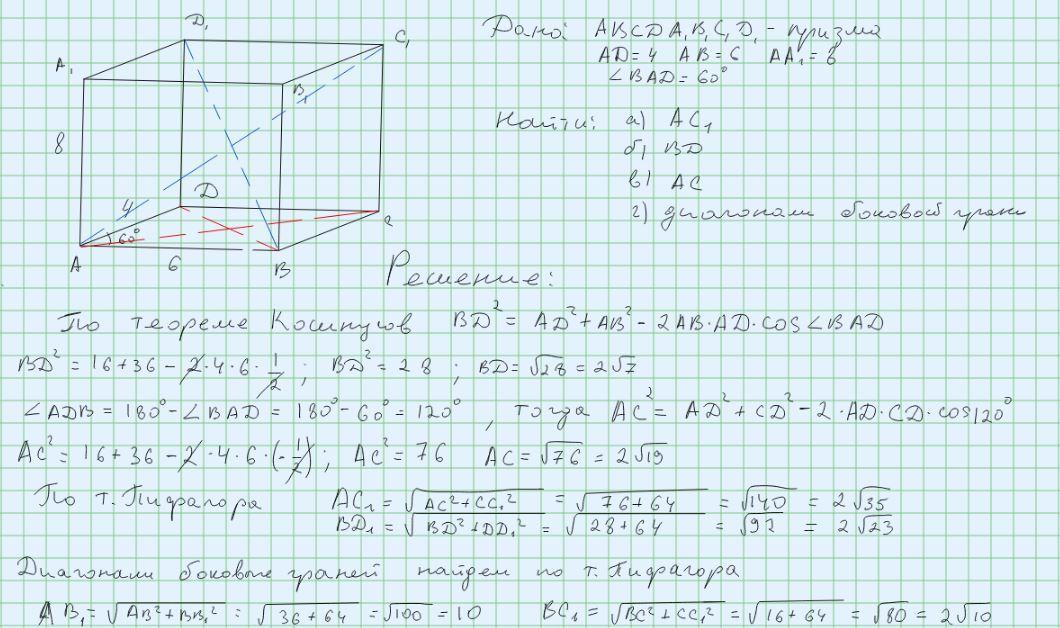 D₁
C₁
A₁
B₁
8
4
D
60°
C
A
6
B
Дано: ABCDA₁B₁C₁D₁ - призма
AD=4 AB=6 AA₁=8
∠BAD=60°
Найти: а) AC₁
б) BD
в) AC
г) диагонали боковой грани
Решение:
По теореме Косинусов BD² = AD² + AB² - 2AB·AD·cos∠BAD
BD² = 16+36 - 2·4·6·1/2 ; BD² = 28 ; BD = √28 = 2√7
∠ADB = 180° - ∠BAD = 180° - 60° = 120° , тогда AC² = AD² + CD² - 2·AD·CD·cos120°
AC² = 16+36 - 2·4·6·(-1/2) ; AC² = 76 AC = √76 = 2√19
По т. Пифагора AC₁ = √(AC²+CC₁²) = √(76+64) = √140 = 2√35
BD₁ = √(BD²+DD₁²) = √(28+64) = √92 = 2√23
Диагонали боковые граней найдем по т. Пифагора
AB₁ = √(AB²+BB₁²) = √(36+64) = √100 = 10 BC₁ = √(BC²+CC₁²) = √(16+64) = √80 = 2√10